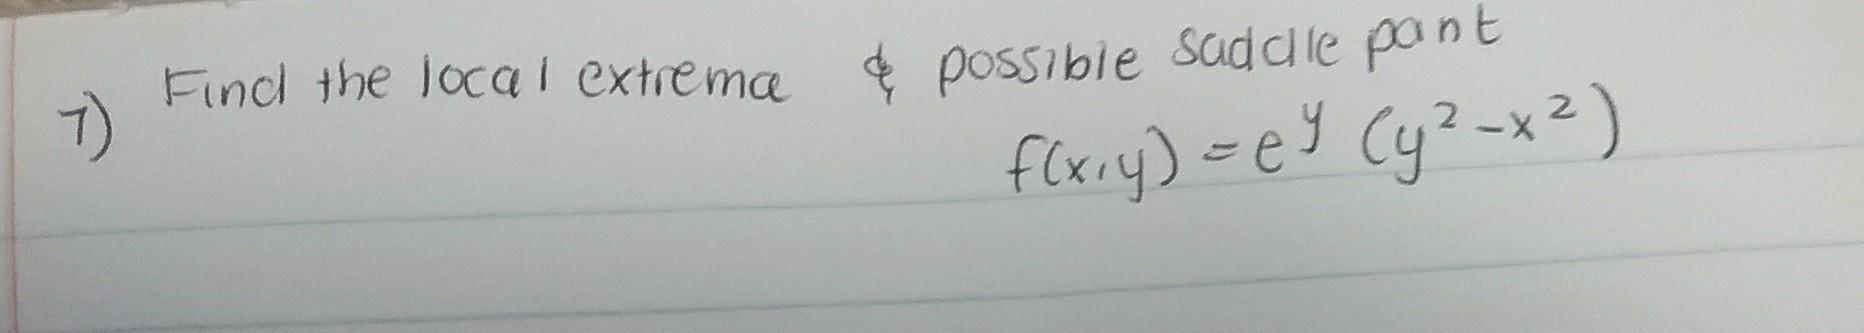 7) Find the local extrema & possible saddle pant
f(x,y) = e^y (y² - x²)